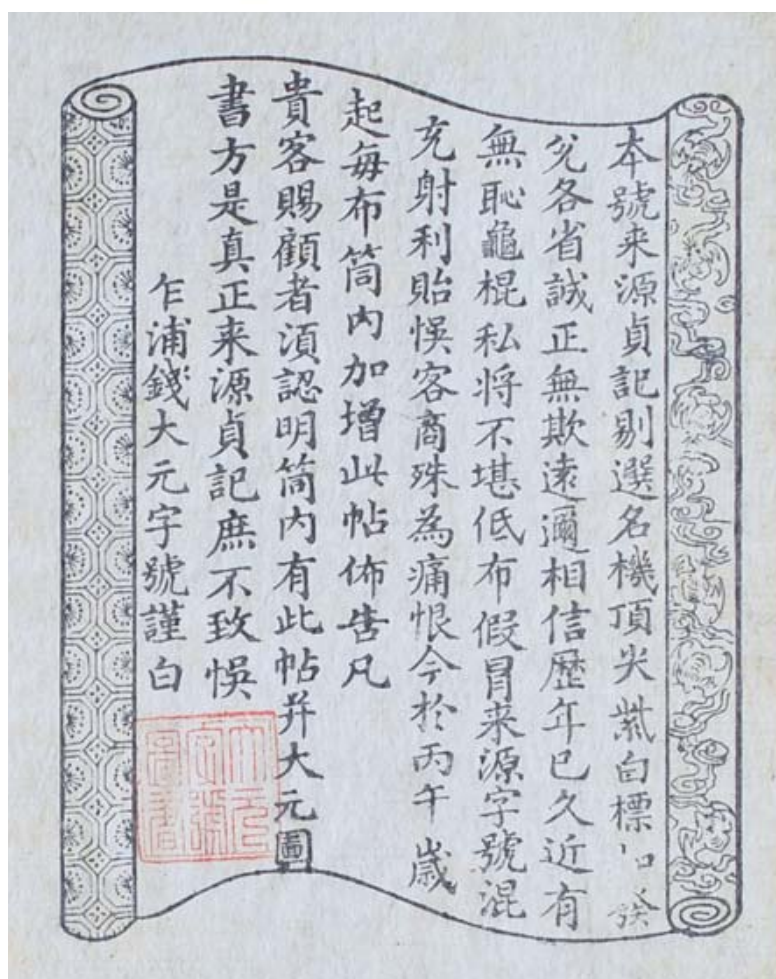 本號来源貞記剔選名機頂尖紫白標布發
兌各省誠正無欺遠邇相信歷年已久近有
無恥龜棍私将不堪低布假冒来源字號混
充射利貽悞客商殊為痛恨今於丙午歲
起每布筒内加增此帖佈告凡
貴客賜顧者湏認明筒内有此帖并大元圖
書方是真正来源貞記庶不致悞
乍浦錢大元字號謹白
大元字號圖書